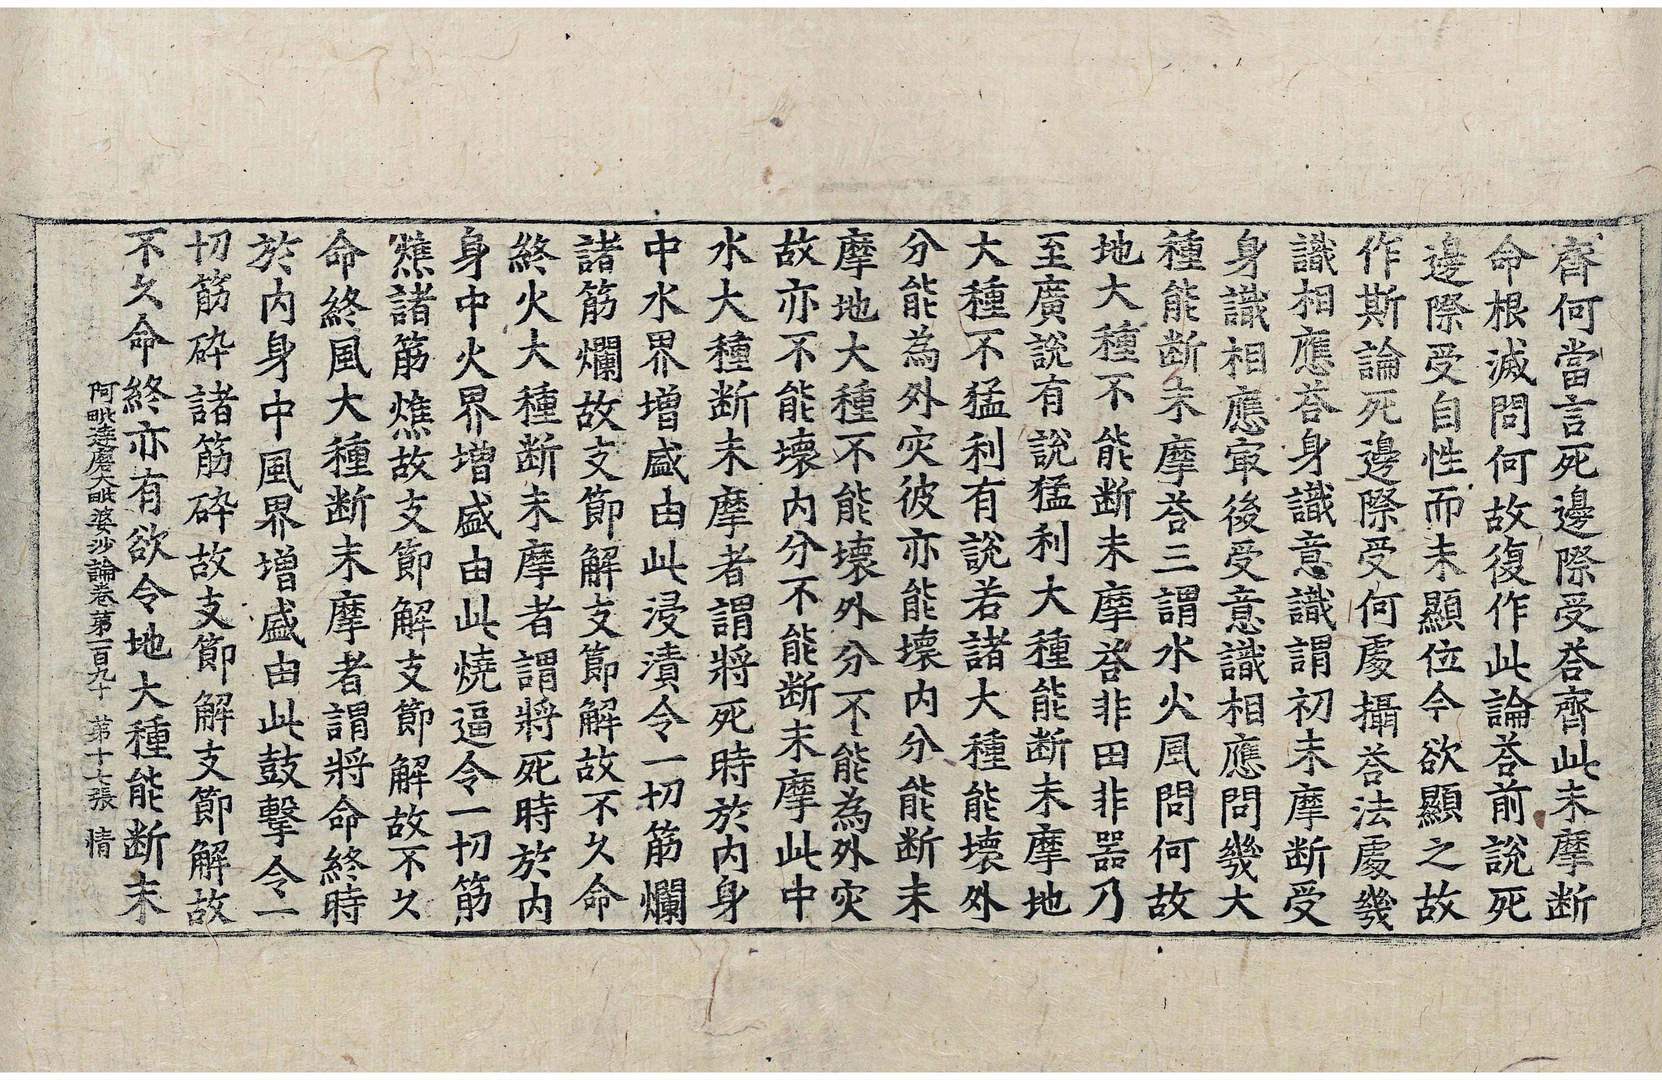 齊何當言死邊際受荅齊此末摩断
命根滅問何故復作此論荅前說死
邊際受自性而未顯位今欲顯之故
作斯論死邊際受何處攝荅法處幾
識相應荅身識意識謂初末摩断受
身識相應冣後受意識相應問幾大
種能断末摩荅三謂水火風問何故
地大種不能断末摩荅非田非器乃
至廣說有說猛利大種能断末摩地
大種不猛利有說若諸大種能壞外
分能為外灾彼亦能壞内分能断末
摩地大種不能壞外分不能為外灾
故亦不能壞内分不能断末摩此中
水大種断末摩者謂將死時於内身
中水界增盛由此浸漬令一切筋爛
諸筋爛故支節解支節解故不久命
終火大種断末摩者謂將死時於内
身中火界增盛由此燒逼令一切筋
燋諸筋燋故支節解支節解故不久
命終風大種断末摩者謂將命終時
於内身中風界增盛由此鼓擊令一
切筋碎諸筋碎故支節解支節解故
不久命終亦有欲令地大種能断末
阿毗達磨大毗婆沙論卷第一百九十　第十七張　情